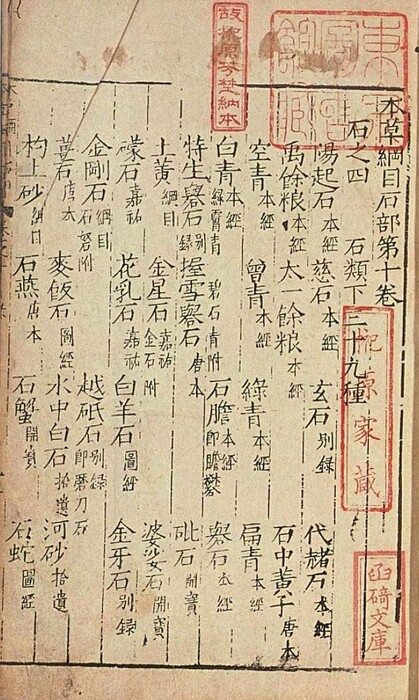 本草綱目石部第十卷
石之四 石類下三十九種
陽起石本經 慈石本經 玄石別錄 代赭石本經
禹餘粮本經 太一餘粮本經 石中黃子唐本
空青本經 曾青本經 綠青本經 扁青本經
白青本經 綠膚青 碧石青附 石膽本經 即膽礬 礜石本經
特生礜石別錄 握雪礜石唐本 砒石開寶
土黃綱目 金星石嘉祐 金石附 婆娑石開寶
礞石嘉祐 花乳石嘉祐 白羊石圖經 金牙石別錄
金剛石綱目 石砮附 越砥石別錄 即磨刀石
薑石唐本 麥飯石圖經 水中白石拾遺 河砂拾遺
杓上砂綱目 石燕唐本 石蟹開寶 石蛇圖經
故榊原芳埜納本
榊原家藏
函碕文庫